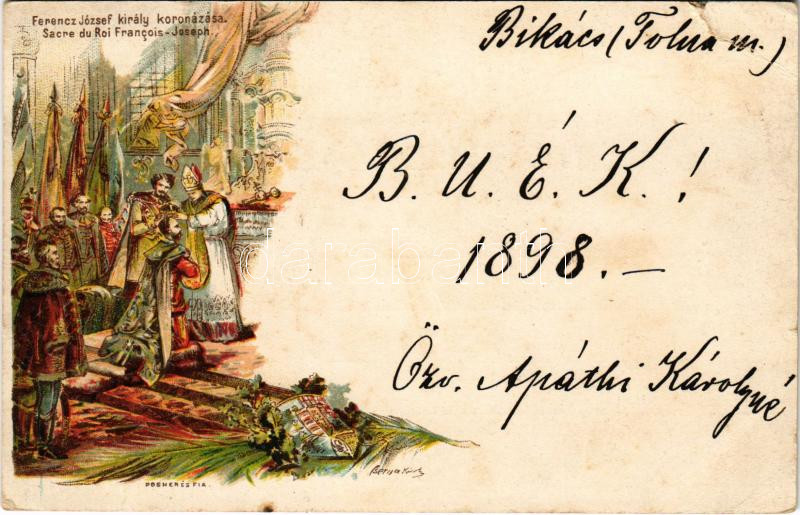 Ferencz József király koronázása.
Sacre du Roi François-Joseph.
Bikács (Tolna m.)
B. U. É. K.!
1898.—
Özv. Apáthi Károlyné
darabanth
POSNER ÉS FIA.